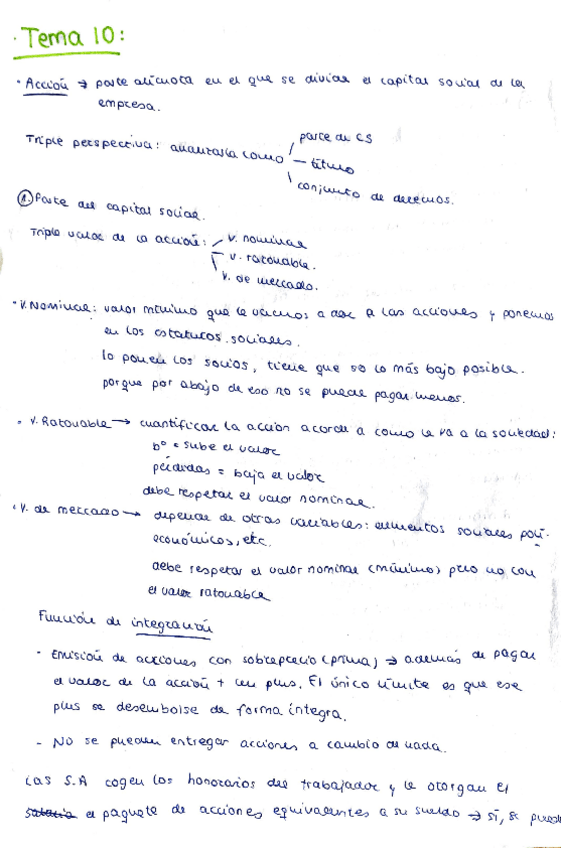 Tema 10:
· Acción → parte alícuota en el que se divide el capital social de la
empresa.
Triple perspectiva: analizarla como
parte de CS
título
conjunto de derechos.
① Parte del capital social.
Triple valor de la acción:
v. nominal
v. razonable.
v. de mercado.
· V. Nominal: valor mínimo que le vamos a dar a las acciones y ponemos
en los estatutos sociales.
lo ponen los socios, tiene que ser lo más bajo posible.
porque por abajo de eso no se puede pagar menos.
· V. Razonable → cuantificar la acción acorde a como le va a la sociedad:
bº = sube el valor
pérdidas = baja el valor
debe respetar el valor nominal.
· V. de mercado → depende de otras variables: elementos sociales polí-
económicos, etc.
debe respetar el valor nominal (mínimo) pero no con
el valor razonable
Función de integración
- Emisión de acciones con sobreprecio (prima) → además de pagar
el valor de la acción + un plus. El único límite es que ese
plus se desembolse de forma íntegra.
- No se pueden entregar acciones a cambio de nada.
Las S.A cogen los honorarios del trabajador y le otorgan el
salario el paquete de acciones equivalentes a su sueldo → sí, se puede